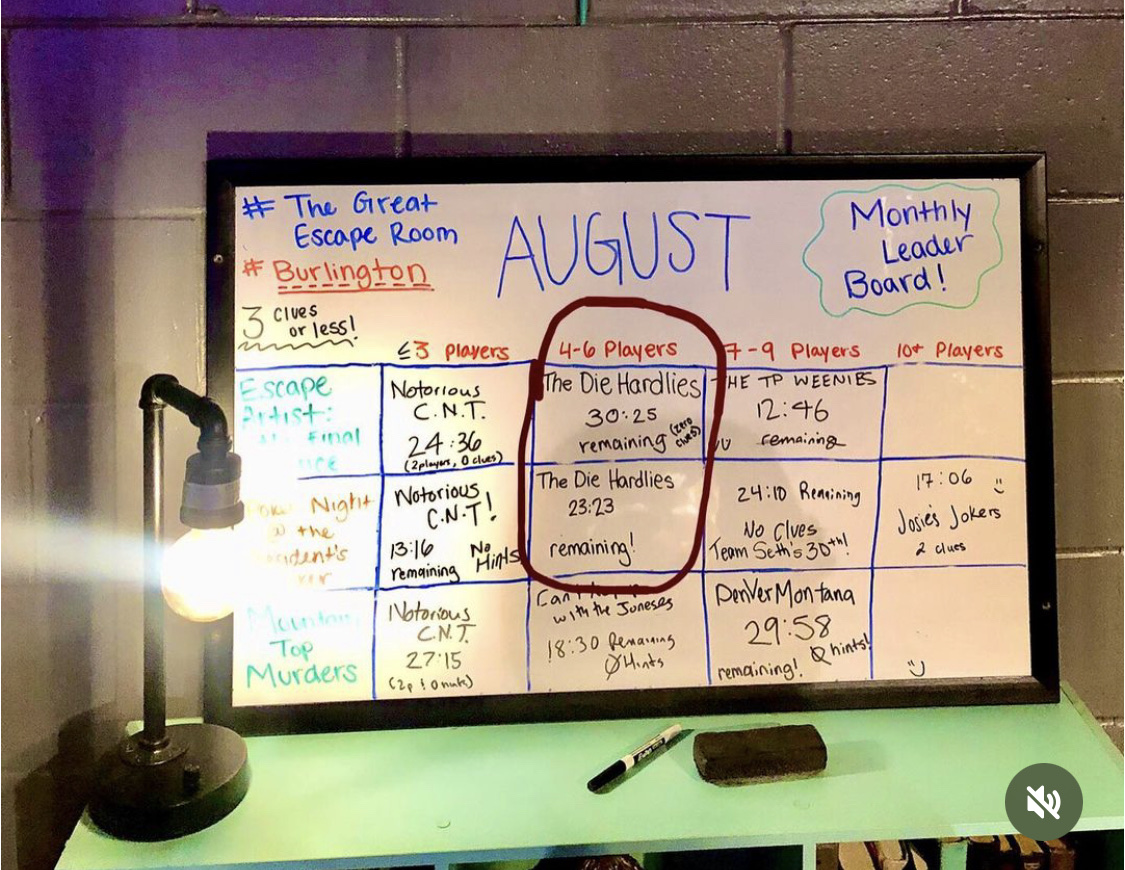 # The Great
Escape Room
# Burlington
AUGUST
Monthly
Leader
Board!
3 clues
or less!
≤3 Players
4-6 Players
7-9 Players
10+ Players
Escape
Artist:
Final
Notorious
C.N.T.
24:36
(2players, 0 clues)
The Die Hardlies
30:25
remaining (zero
clues)
THE TP WEENIES
12:46
remaining
Night
@ the
Notorious
C.N.T!
13:16
remaining
No
Hints
The Die Hardlies
23:23
remaining!
24:10 Remaining
No Clues
Team Seth's 30th!
17:06
Josie's Jokers
2 clues
Mountain
Top
Murders
Notorious
C.N.T.
27:15
with the Joneses
18:30 Remaining
Ø Hints
DenVerMontana
29:58
Ø hints!
remaining!